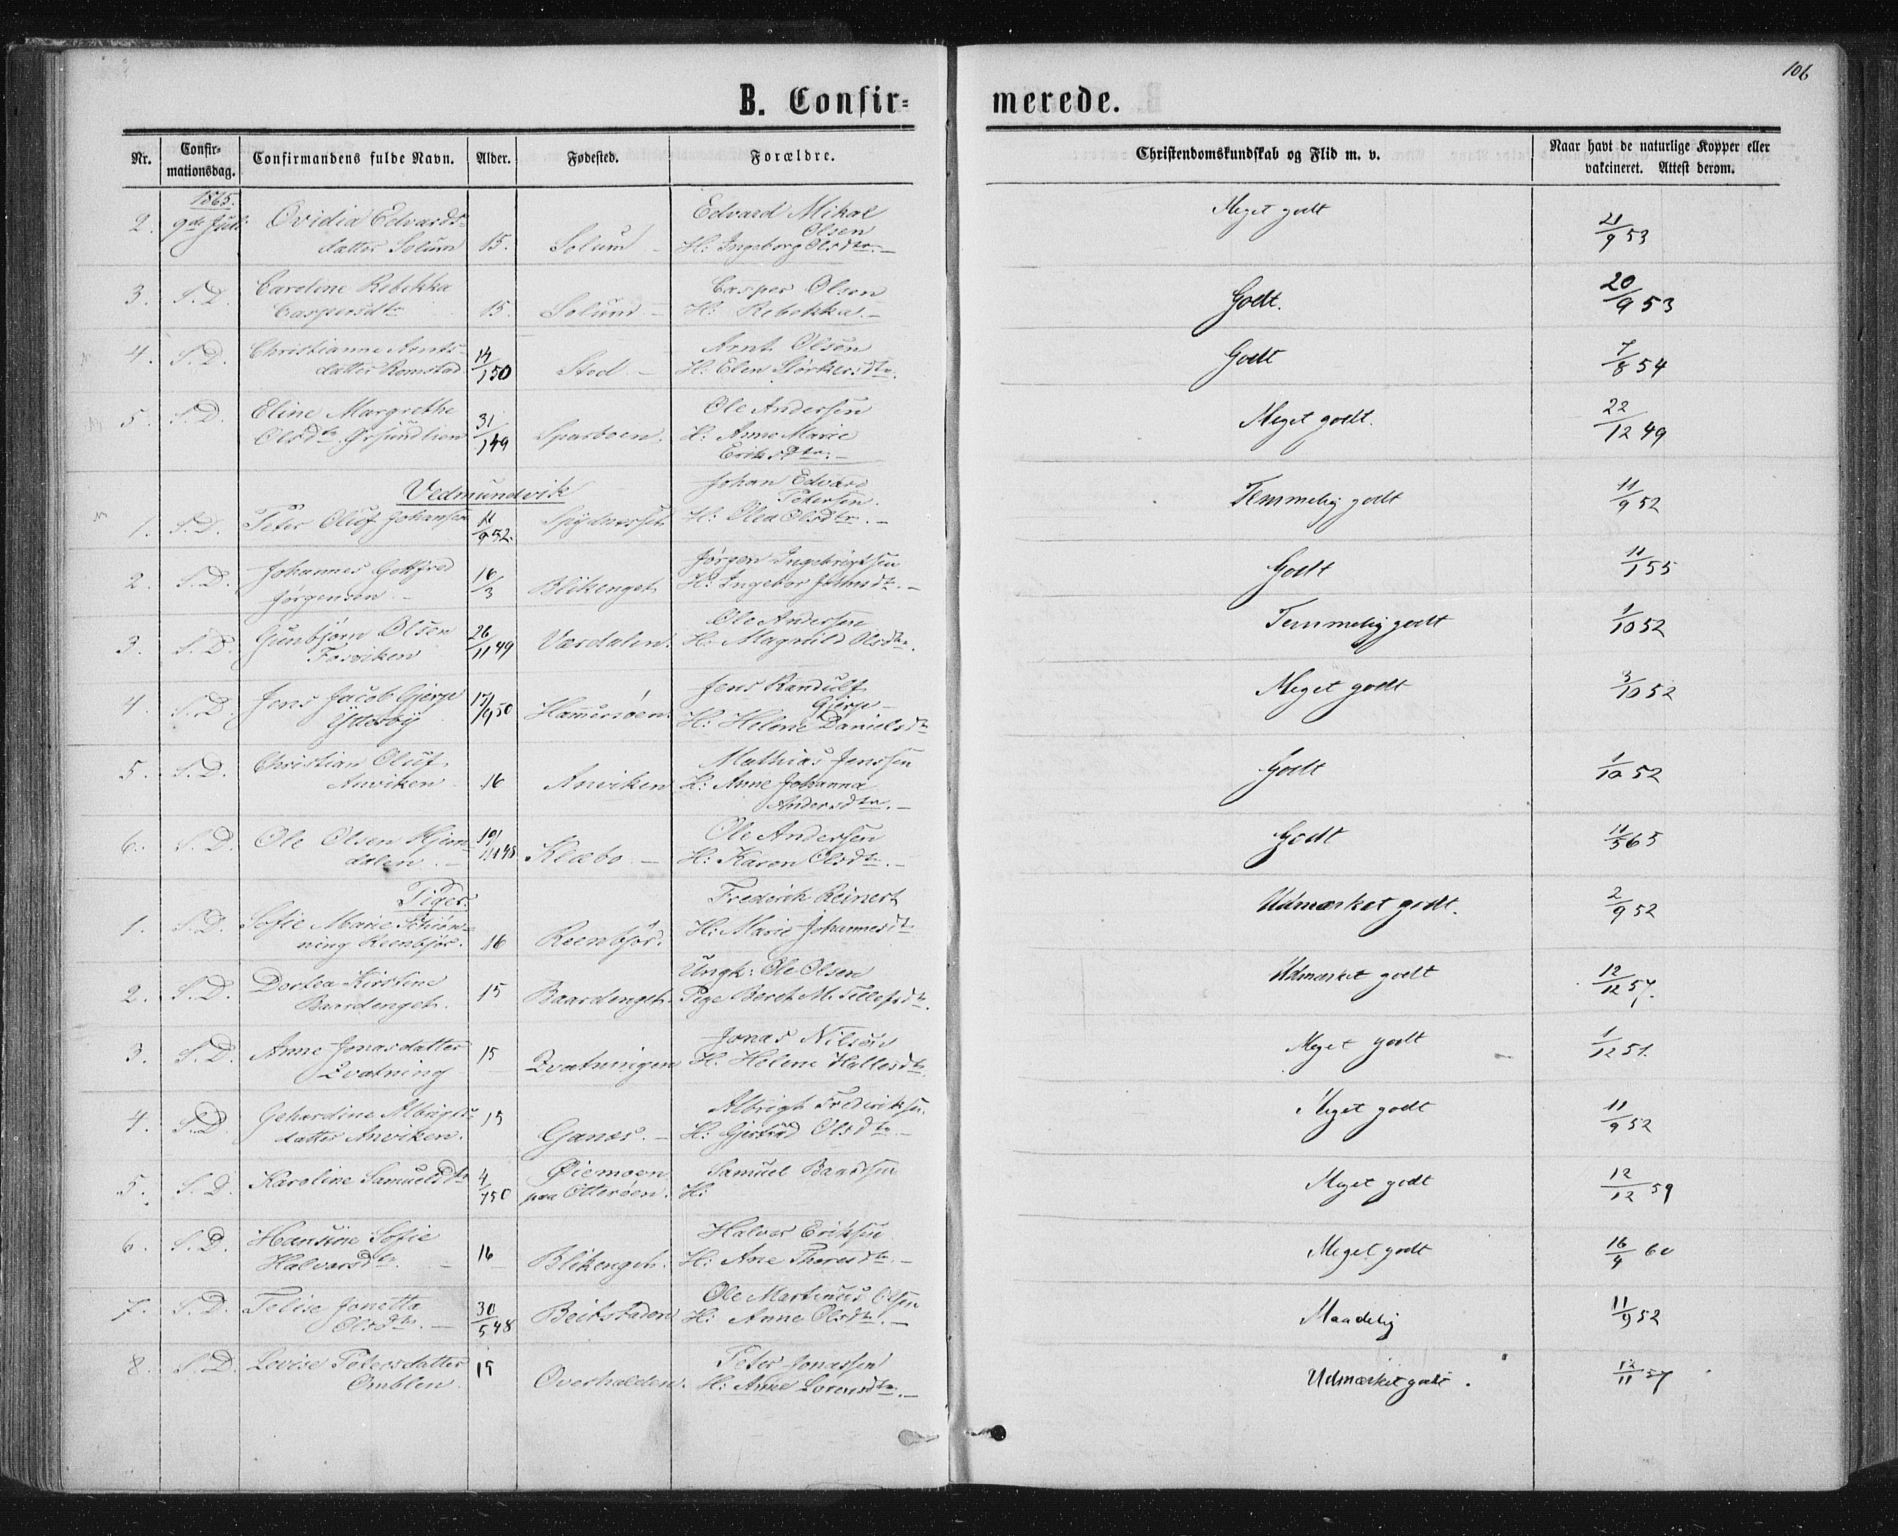 106
B. Confir=
merede.
Nr.
Confir-
mationsdag.
Confirmandens fulde Navn.
Alder.
Fødested.
Forældre.
Christendomskundskab og Flid m. v.
Naar havt de naturlige Kopper eller
vakcineret. Attest derom.
1865.
2. 9de Juli Ovidia Edvards-
datter Solum 15. Solum
Edvard Mikal
Olsen
H: Ingeborg Olsdtr. —
Meget godt 21/9 53
3. S. D. Caroline Rebekka
Caspersdtr 15. Solum —
Casper Olsen
H: Rebekka. —
Godt. 20/9 53
4. S. D. Christianne Arnts-
datter Romstad 14/1 50 Stod —
Arnt Olsen
H: Elen Størkersdtr.
Godt 7/8 54
5. S. D. Eline Margrethe
Olsdtr. 31/1 49 Sparboen.
Ole Andersen
H: Anne Marie
Eriksdtr. —
Meget godt. 22/12 49
Vedmundvik
1. S. D. Peter Oluf Johansen 11/9 52.
Johan Edvard
Petersen.
H: Olea Olsdtr. —
Temmelig godt 11/9 52
2. S. D. Johannes Gotfred
Jørgensen — 16/3 Blikenget
Jørgen Ingebrigtsen
H: Ingebor —
Godt 11/1 55
3. S. D. Gunbjørn Olsen
Fosviken 26/11 49 Værdalen.
Ole Andersen
H: Magnild Olsdtr.
Temmelig godt 1/10 52
4. S. D. Jens Jacob Gjerpe
Ydesby 15/9 50
Jens Randulf
Gjerpe —
H: Helene Danielsdtr
Meget godt 3/10 52
5. S. D. Christian Oluf
Anviken 16 Anviken
Mathias Jenssen
H: Anne Johanna
Andersdtr. —
Godt 1/10 52
6. S. D. Ole Olsen Hjem-
dalen. — Klæbo. —
Ole Andersen
H: Karen Olsdtr. —
Godt 11/5 65
Piger
1. S. D. Sofie Marie Schiøn-
ning Reenbjør. 16 Reenbjør.
Frederik Reinert
H: Marie Johannesdtr
Udmærket godt. 2/9 52
2. S. D. Dortea Kirstine
Baardenget. 15 Baardenget.
Ungk: Ole Olsen
Pige Beret M. Tellefsdtr.
Udmærket godt 12/12 57.
3. S. D. Anne Jonasdatter
Qvatning 15 Qvatningen
Jonas Nilsen
H. Helene Hallesdtr.
Meget godt 1/12 51.
4. S. D. Gehardine Albrigts-
datter Anviken. 15 Ganes. —
Albrigt Frederiksen
H: Gjertrud Olsdtr. —
Meget godt 11/9 52
5. S. D. Karoline Samuelsdtr 4/1 50 Øiemoen
paa Otterøen.
Samuel Baardsen
H:
Meget godt 12/12 59
6. S. D. Hansine Sofie
Halvorsdtr. — 16 Blikenget.
Halvor Eriksen
H: Ane Thoresdtr. —
Meget godt 16/4 60
7. S. D. Telise Jonetta
Olsdtr. — 30/5 48 Beitstaden
Ole Martinus Olsen
H: Anne Olsdtr. —
Maadelig 11/9 52
8. S. D. Lovise Petersdatter
Omblen. 15 Overhalden.
Peter Jonassen
H: Anne Lorensdtr. —
Udmærket godt. 12/11 57